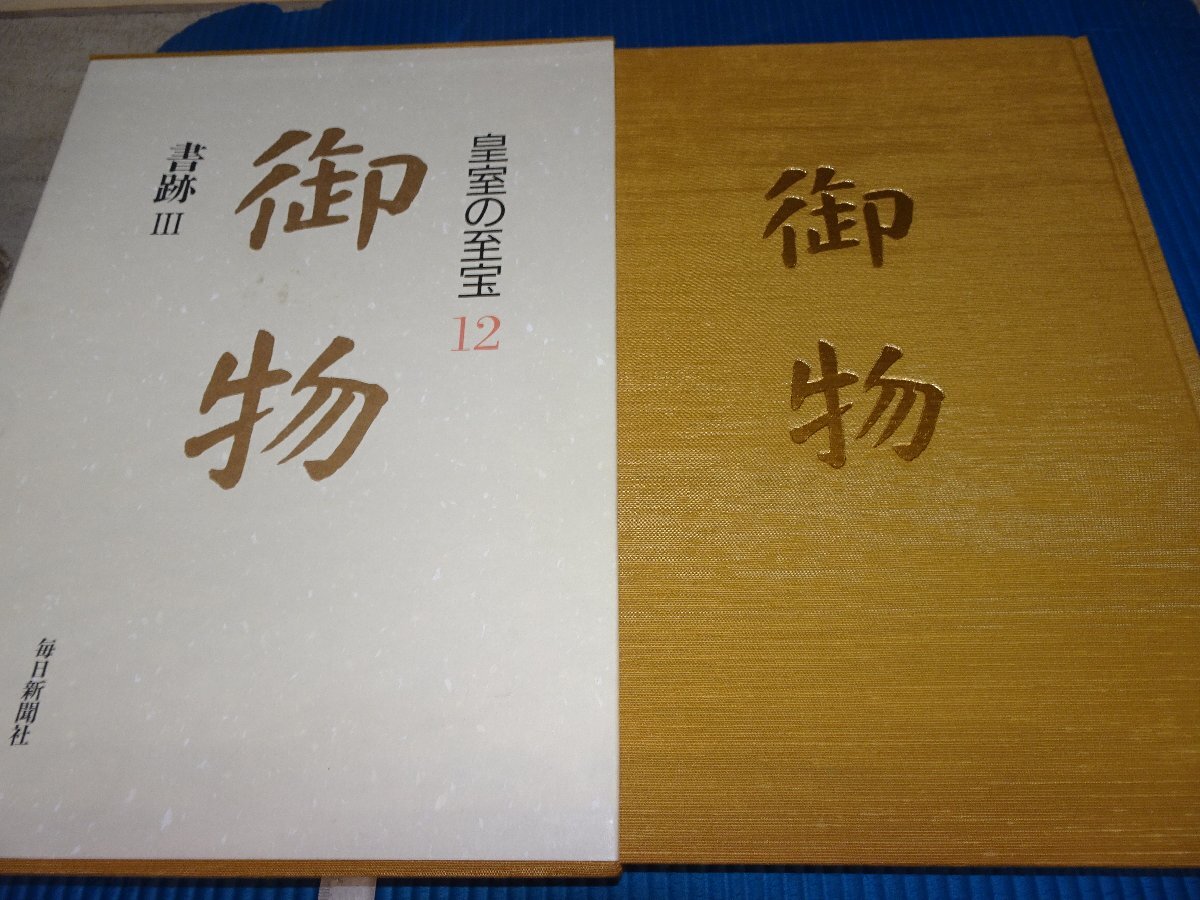 皇室の至宝 12
御物
書跡 III
毎日新聞社
御物